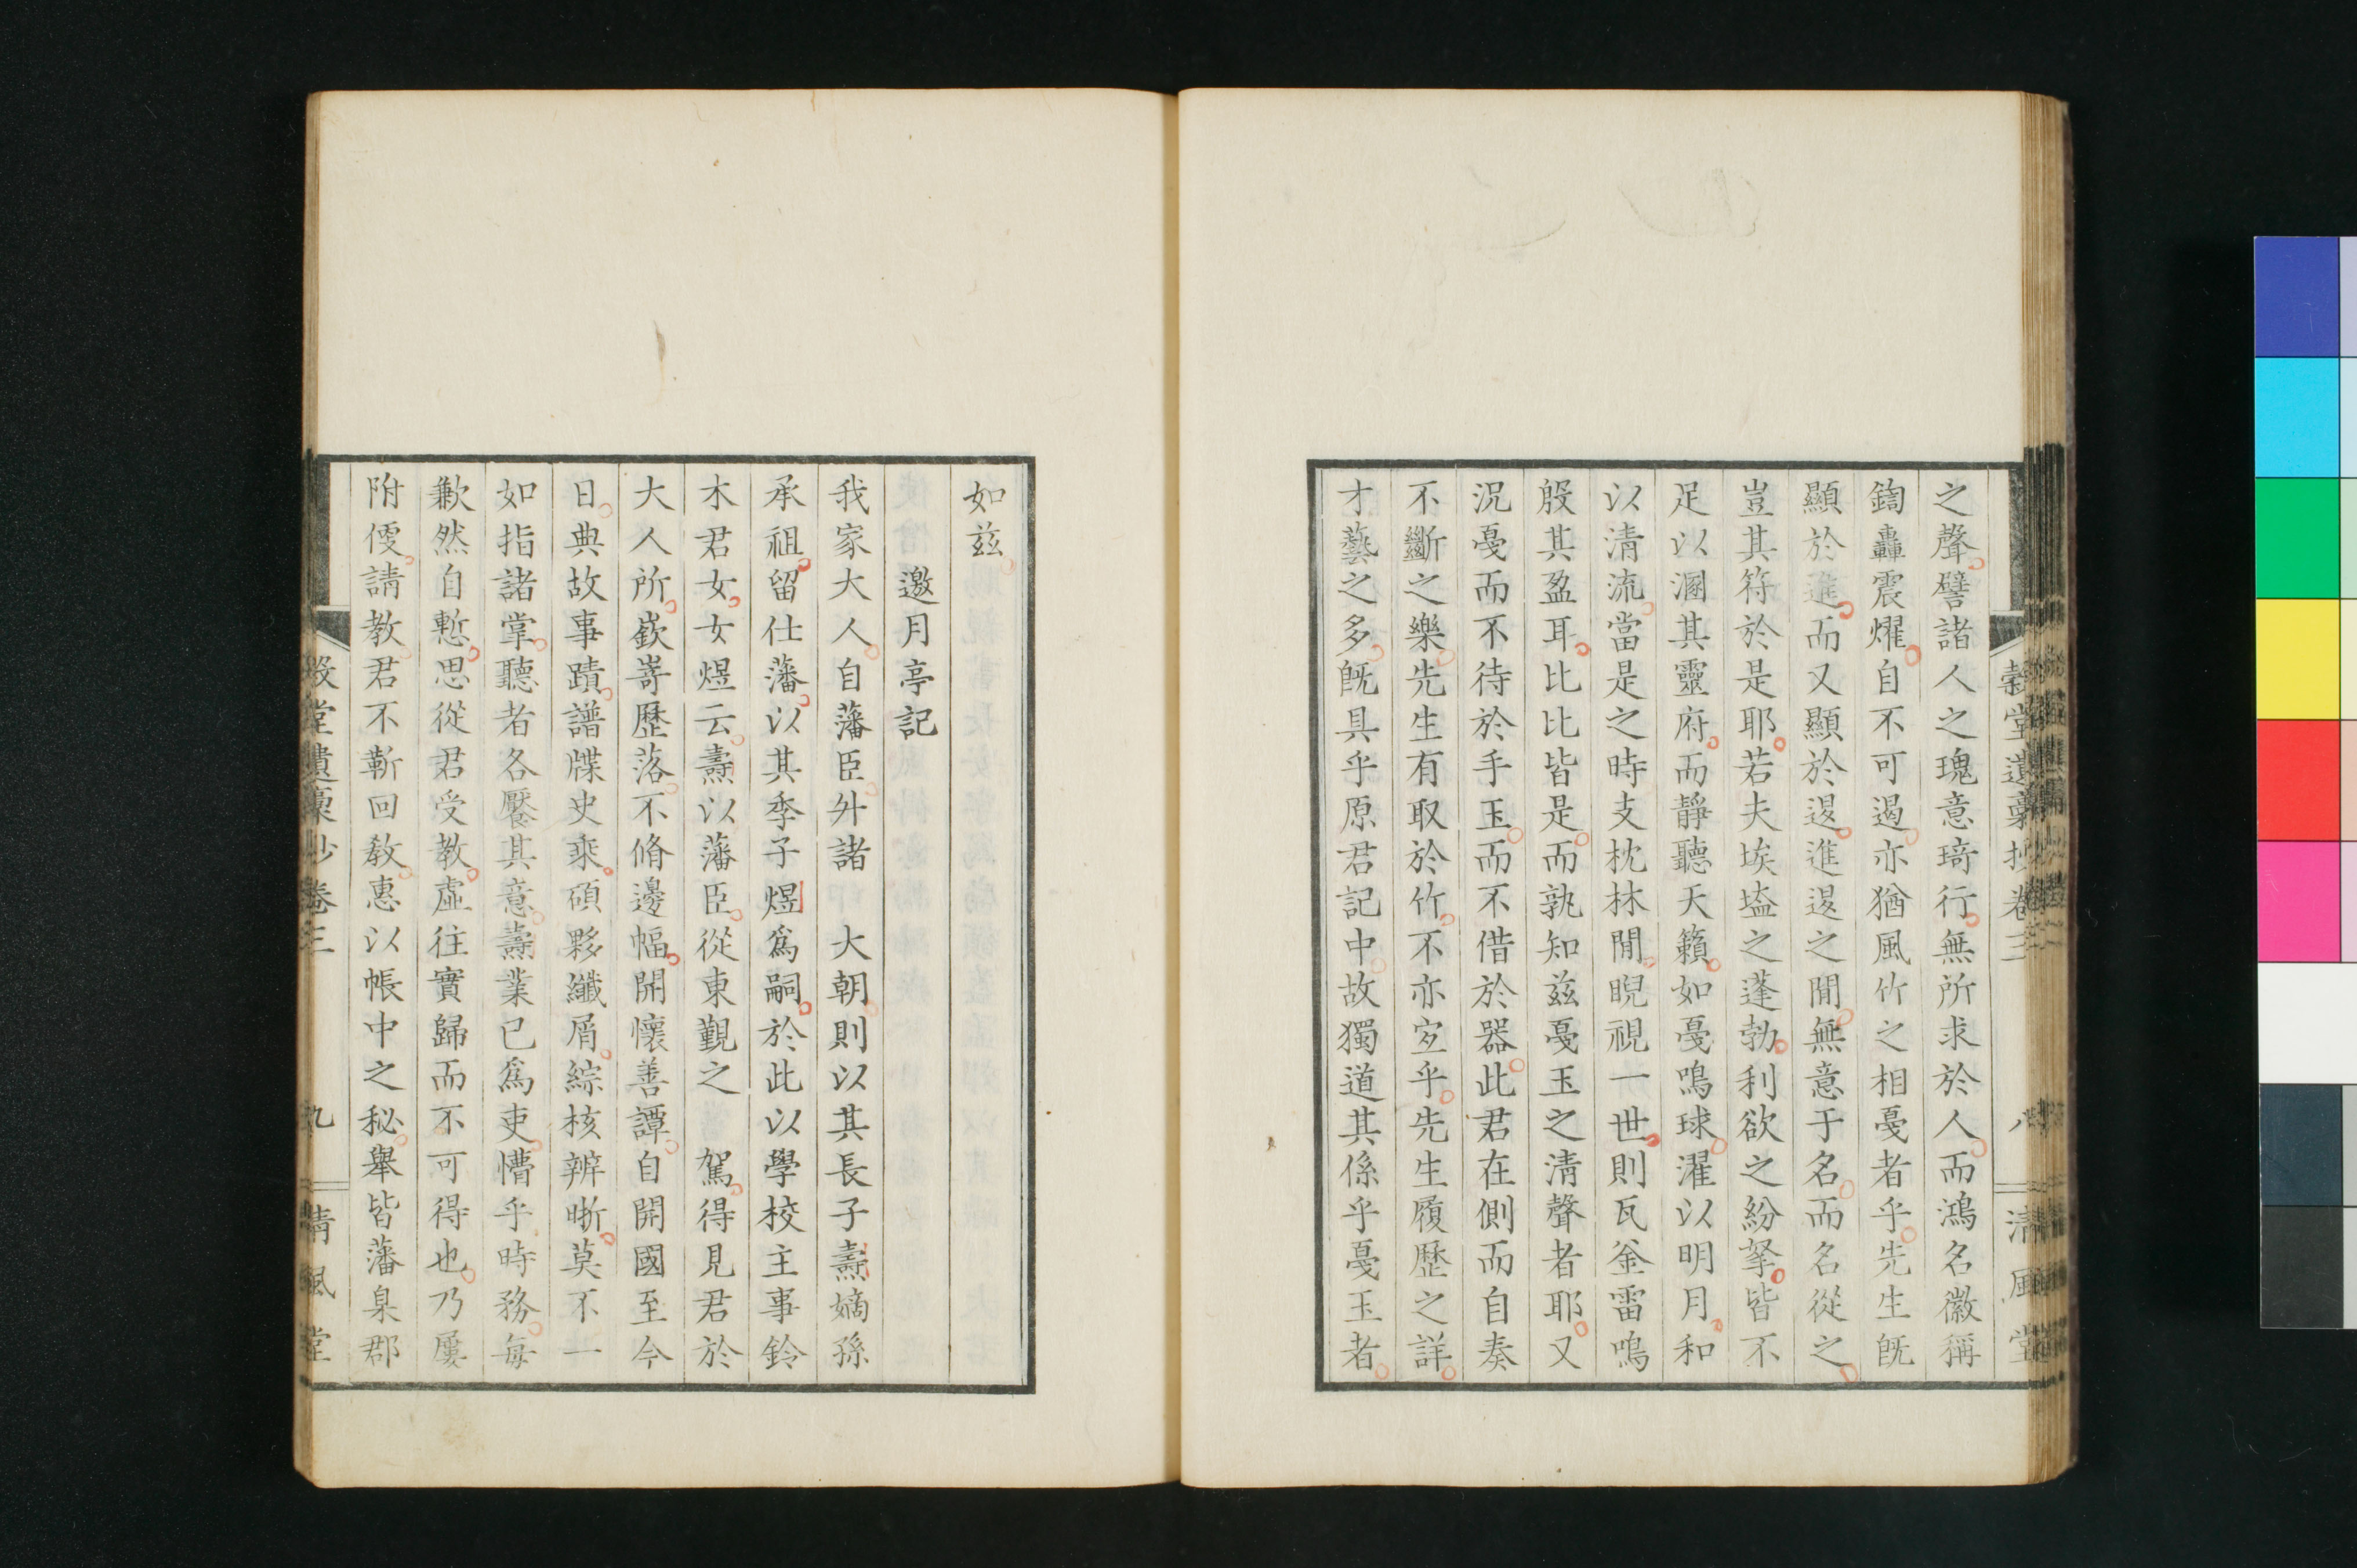 之聲譬諸人之瑰意琦行無所求於人而鴻名徽稱
鍧轟震燿自不可遏亦猶風竹之相戞者乎先生旣
顯於進而又顯於退進退之閒無意于名而名從之
豈其符於是耶若夫埃壒之蓬勃利欲之紛拏皆不
足以溷其靈府而靜聽天籟如戞鳴球濯以明月和
以清流當是之時支枕林閒睨視一世則瓦釜雷鳴
殷其盈耳比比皆是而孰知茲戞玉之淸聲者耶又
況戞而不待於手玉而不借於器此君在側而自奏
不斷之樂先生有取於竹不亦宜乎先生履歷之詳
才藝之多旣具乎原君記中故獨道其係乎戞玉者
穀堂遺稾抄卷三 八 清風堂
如茲
邀月亭記
我家大人自藩臣升諸 大朝則以其長子燾嫡孫
承祖留仕藩以其季子煜爲嗣於此以學校主事鈴
木君女女煜云燾以藩臣從東覲之 駕得見君於
大人所嶔嵜歷落不脩邊幅開懷善譚自開國至今
日典故事蹟譜牒史乘碩夥纖屑綜核辨晰莫不一
如指諸掌聽者各饜其意燾業已爲吏懵乎時務每
歉然自慙思從君受教虛往實歸而不可得也乃屢
附便請教君不靳回敎惠以帳中之秘舉皆藩臬郡
穀堂遺稾抄卷三 九 清風堂